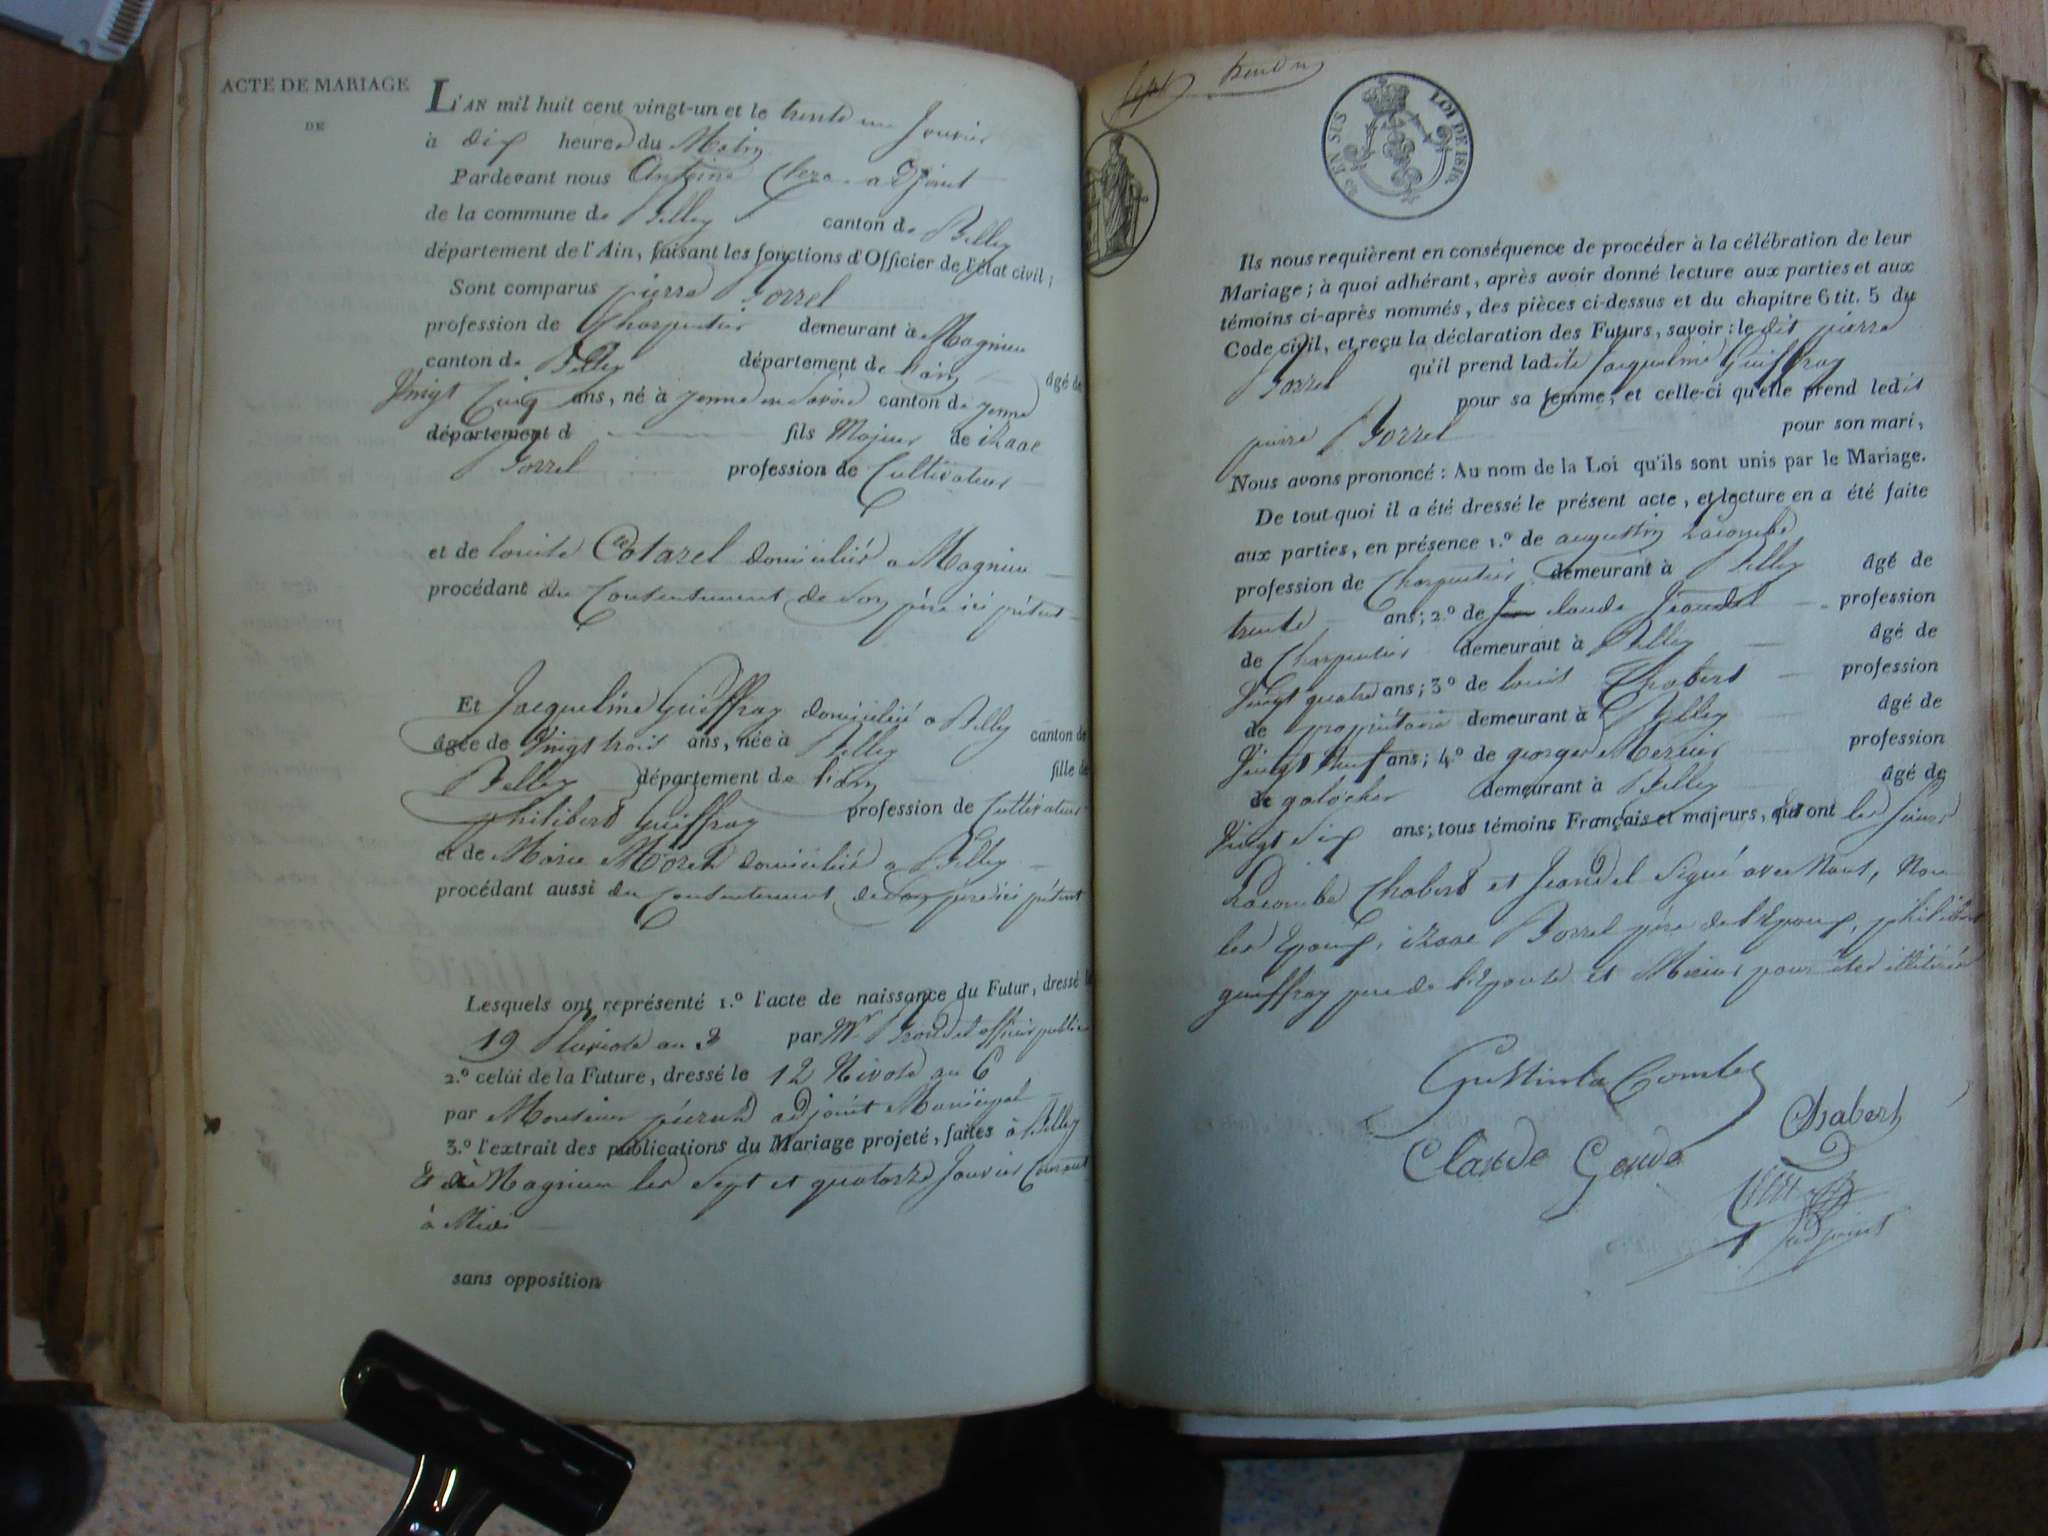 ACTE DE MARIAGE
DE
L'AN mil huit cent vingt-un et le trente un Janvier
à dix heures du Matin
Pardevant nous Antoine Clerc adjoint
de la commune de Belley canton de Belley
département de l'Ain, faisant les fonctions d'Officier de l'état civil;
Sont comparus pierre Borrel
profession de Charpentier demeurant à Magnieu
canton de Belley département de l'ain âgé de
Vingt Cinq ans, né à yenne en Savoie canton de yenne
département d fils Majeur de izaac
Borrel profession de Cultivateur
et de louise Cotarel domiciliés a Magnieu
procédant du Consentement de son père ici présent
Et Jacqueline Guiffray domiciliée a Belley
âgée de Vingt trois ans, née à Belley canton de
Belley département de l'ain fille de
philibert Guiffray profession de Cultivateur
et de Marie Morel domiciliés a Belley
procédant aussi du consentement de son père ici présent
Lesquels ont représenté 1.º l'acte de naissance du Futur, dressé le
19 pluviose an 3 par Mr officier public
2.º celui de la Future, dressé le 12 Nivose an 6
par Monsieur adjoint Municipal
3.º l'extrait des publications du Mariage projeté, faites à Belley
Et à Magnieu les Sept et quatorze Janvier Courant
à Midi
sans opposition
20 EN SUS
LOI DE 1816
Ils nous requièrent en conséquence de procéder à la célébration de leur
Mariage; à quoi adhérant, après avoir donné lecture aux parties et aux
témoins ci-après nommés, des pièces ci-dessus et du chapitre 6 tit. 5 du
Code civil, et reçu la déclaration des Futurs, savoir: le dit pierre
Borrel qu'il prend ladite Jacqueline Guiffray
pour sa femme, et celle-ci qu'elle prend ledit
pierre Borrel pour son mari,
Nous avons prononcé: Au nom de la Loi qu'ils sont unis par le Mariage.
De tout quoi il a été dressé le présent acte, et lecture en a été faite
aux parties, en présence 1.º de augustin Lacombe
profession de Charpentier demeurant à Belley âgé de
trente ans; 2.º de claude Jeandel profession
de Charpentier demeurant à Belley âgé de
Vingt quatre ans; 3.º de louis Chabert profession
de propriétaire demeurant à Belley âgé de
Vingt neuf ans; 4.º de georges Mercier profession
de galocher demeurant à Belley âgé de
Vingt six ans; tous témoins Français et majeurs, qui ont les sieurs
Lacombe Chabert et Jeandel Signé avec Nous, Non
les Epoux, izaac Borrel père de l'Epoux, philibert
guiffray père de l'Epouse et Mercier pour être illitérés
Chabert
Claude
adjoint